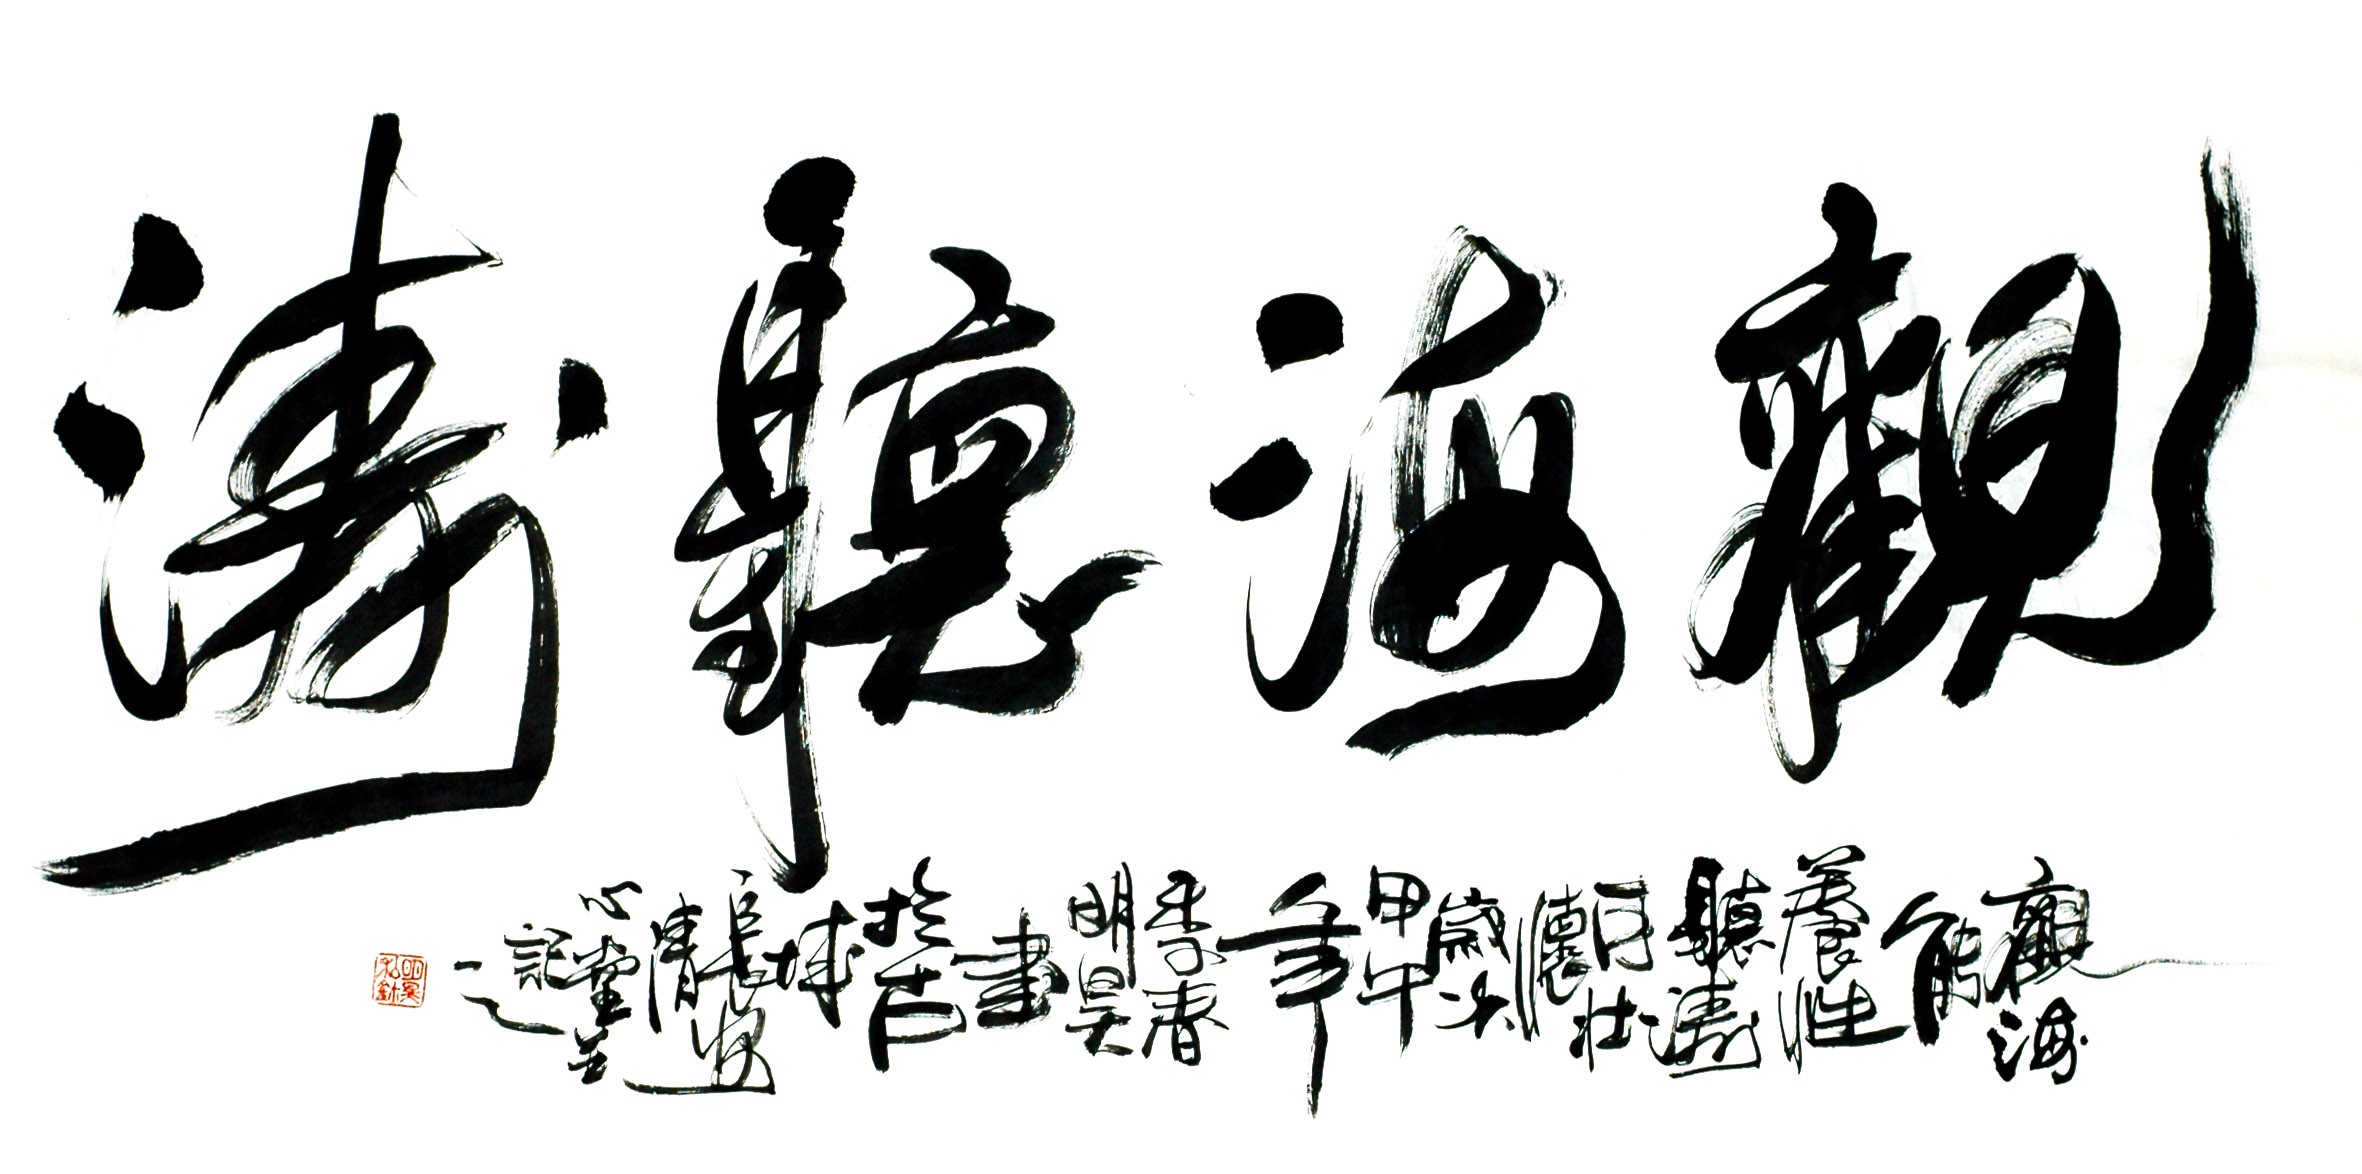 觀海聽濤
觀海
能
養性
聽濤
可壯
懷
歲次
甲午
年
季春
明昊
書
於古
城
長安
清
心堂並
記
之